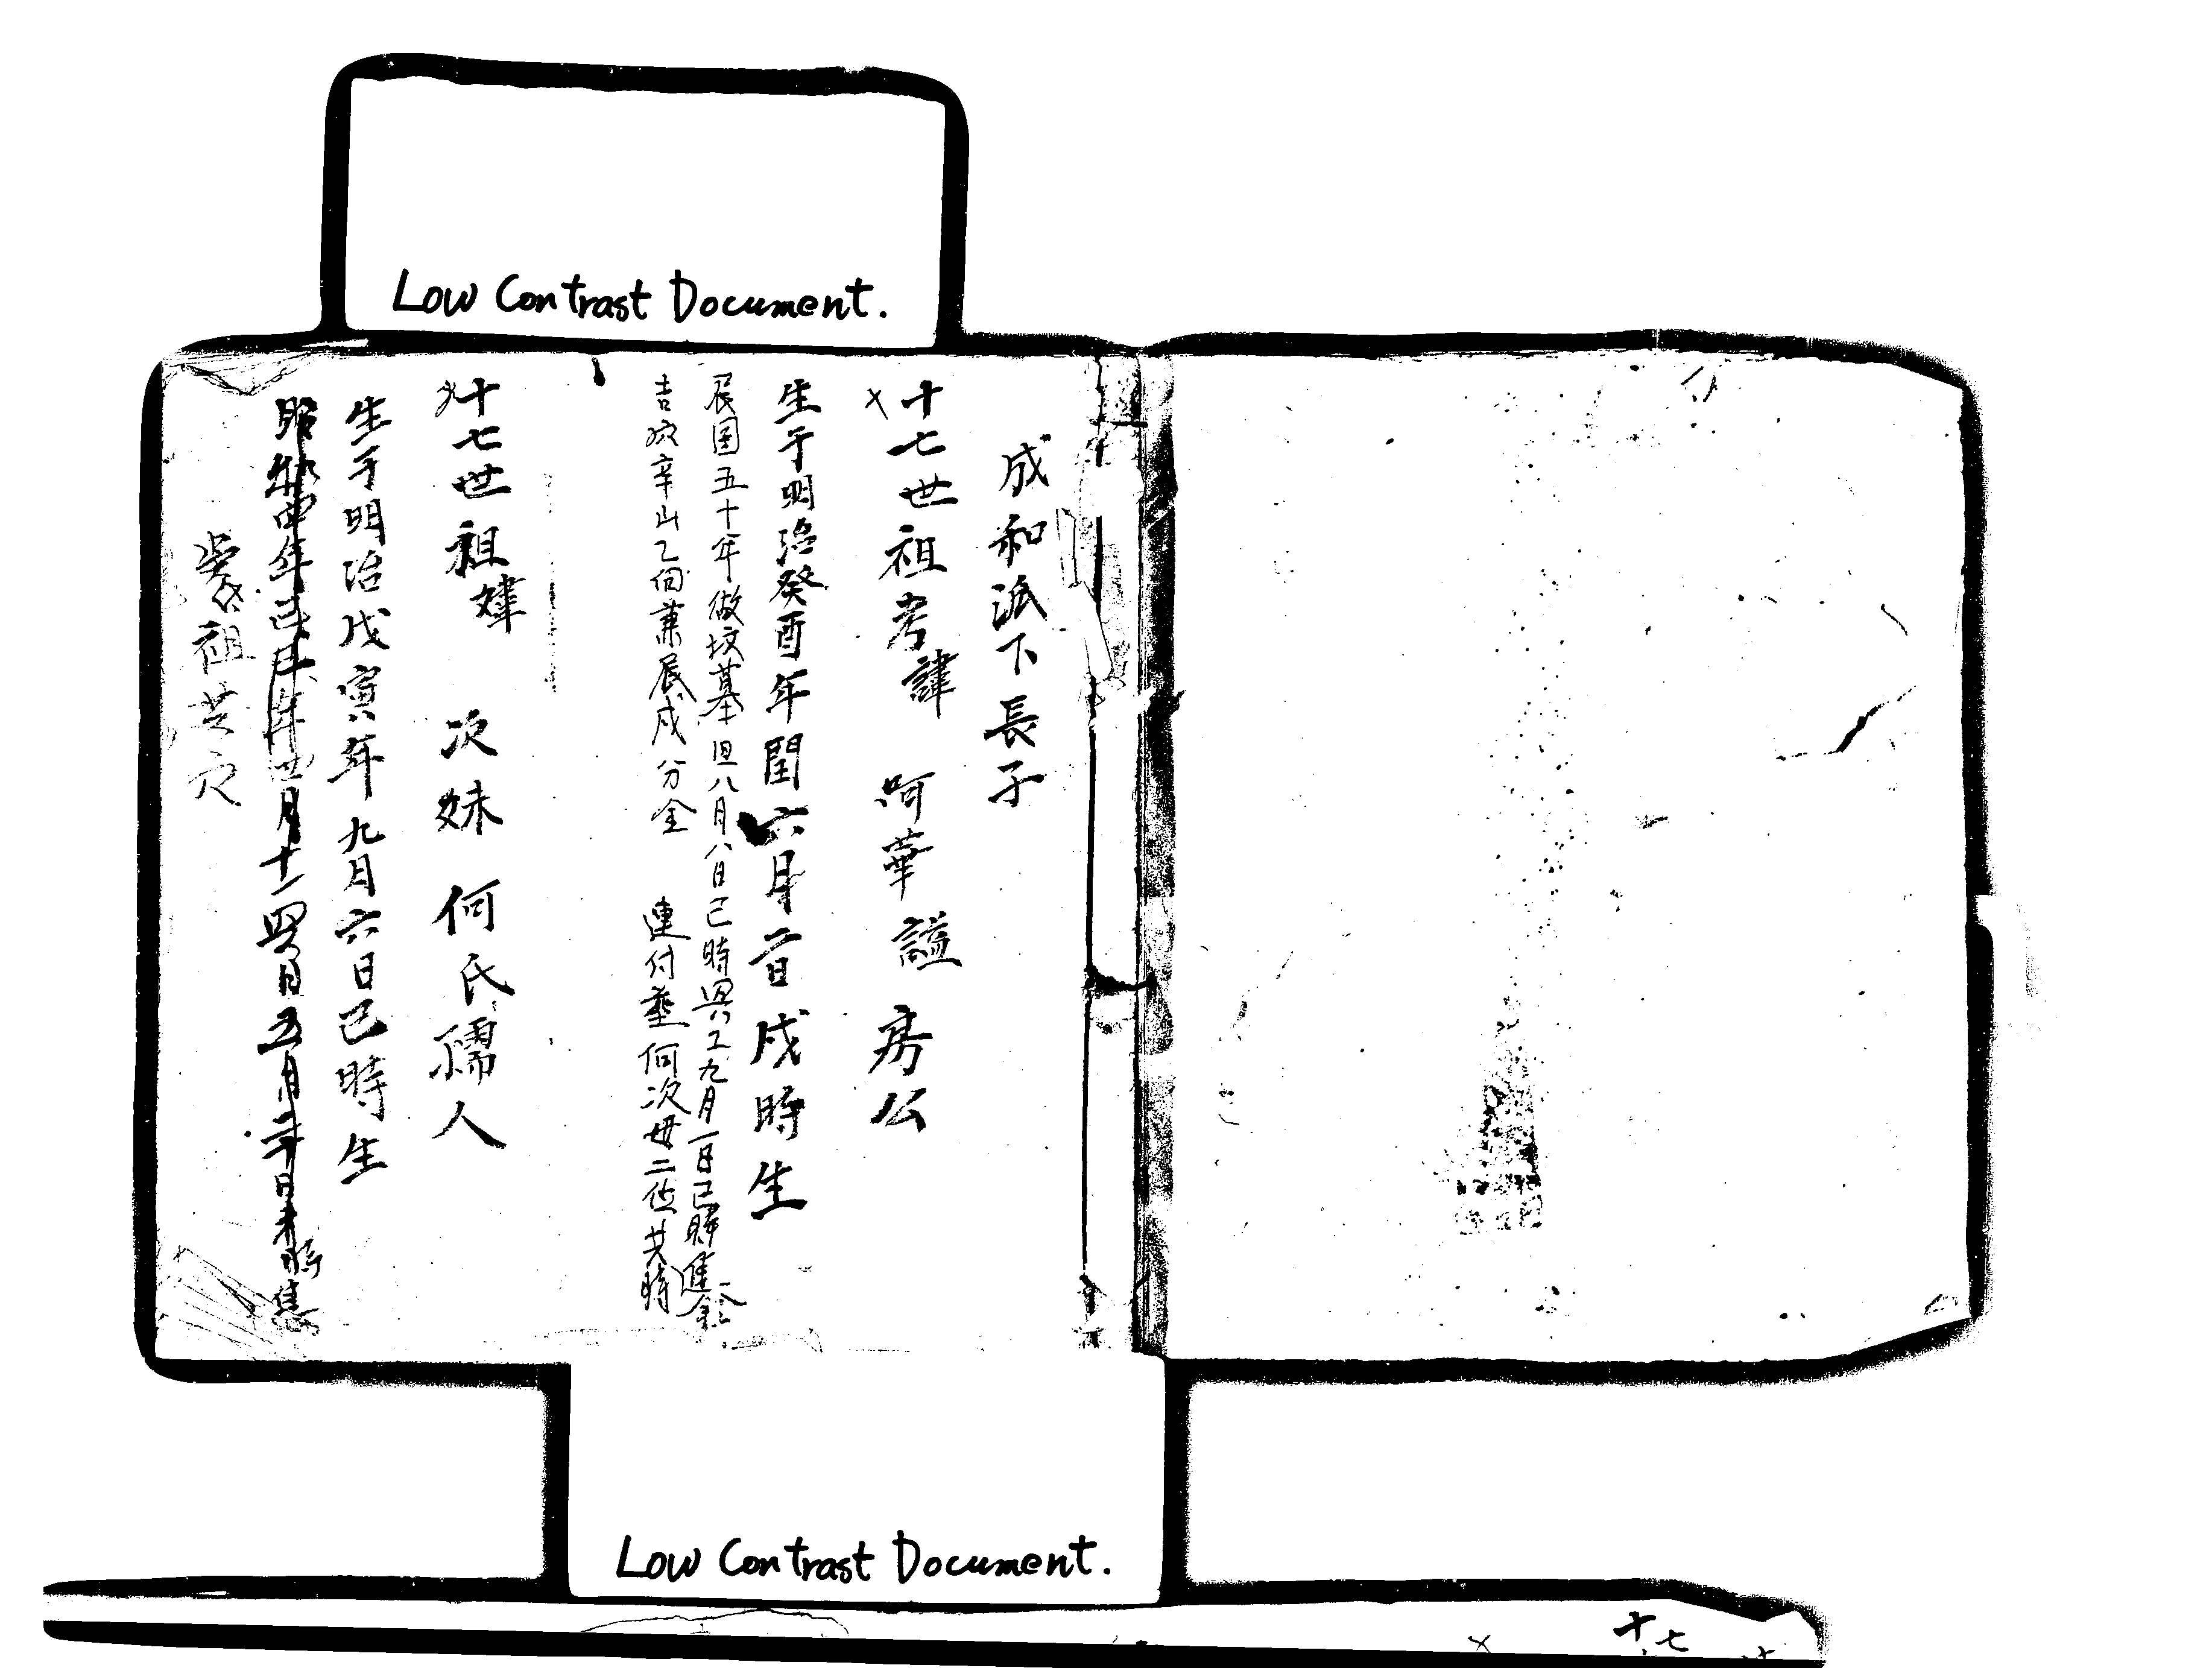 Low Contrast Document.
成和派下長子
×十七世祖考諱 阿華諡 房公
生于明治癸酉年閏六月 戌時生
民国五十年做坟墓 旦八月八日巳時 工九月一日巳時進
吉坟辛山乙向兼辰戌分金 連付 何次母二位共時
十七世祖 次妹何氏孺人
生于明治戊寅年九月六日巳時生
年 月十一 五月 日未時
祖 穴
Low Contrast Document.
× 十七